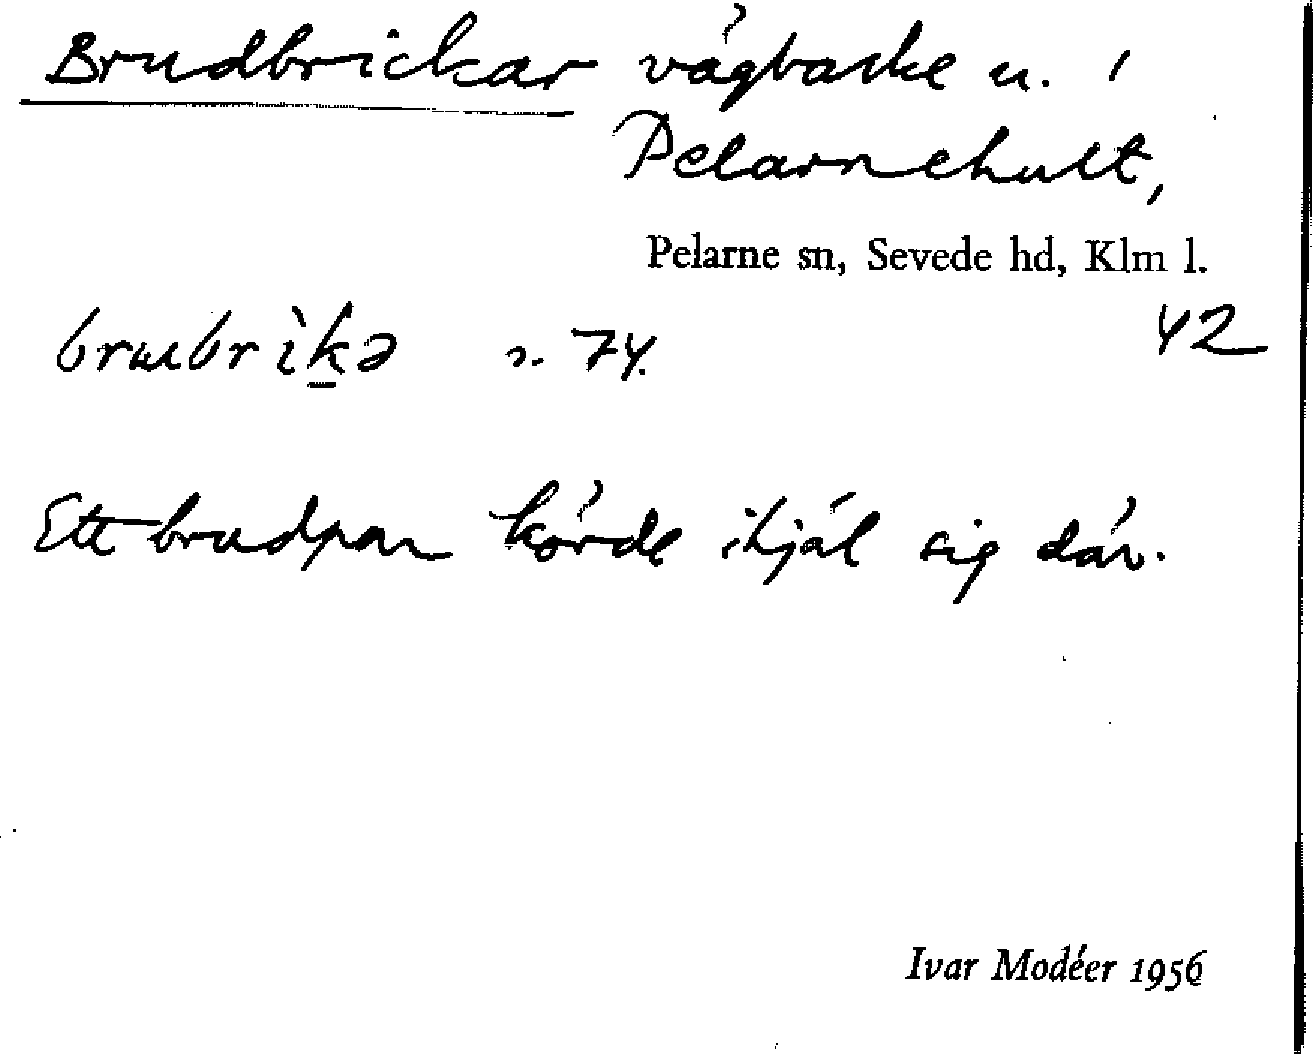 Brudbrickar vägbacke u. i
Pelarnehult,
Pelarne sn, Sevede hd, Klm l.
brɯbrìk̲ə n. 74. 42
Ett brudpar körde ihjäl sig där.
Ivar Modéer 1956